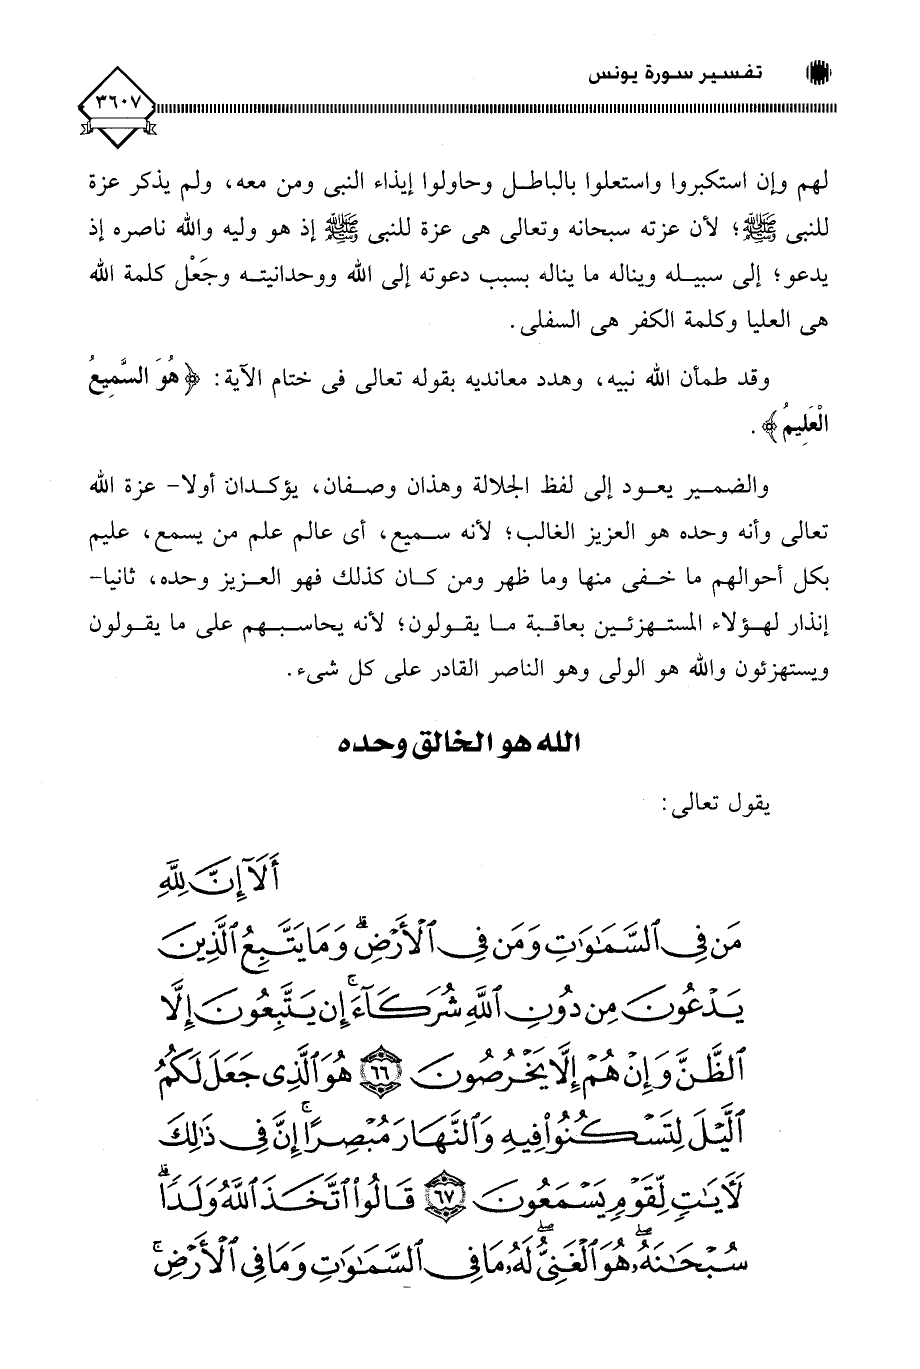 تفسير سورة يونس
٣٦٠٧
لهم وإن استكبروا واستعلوا بالباطل وحاولوا إيذاء النبى ومن معه، ولم يذكر عزة
للنبى ﷺ؛ لأن عزته سبحانه وتعالى هى عزة للنبى ﷺ إذ هو وليه والله ناصره إذ
يدعو؛ إلى سبيله ويناله ما يناله بسبب دعوته إلى الله ووحدانيته وجَعْل كلمة الله
هى العليا وكلمة الكفر هى السفلى.
وقد طمأن الله نبيه، وهدد معانديه بقوله تعالى فى ختام الآية: ﴿هُوَ السَّمِيعُ
الْعَلِيمُ﴾.
والضمير يعود إلى لفظ الجلالة وهذان وصفان، يؤكدان أولا- عزة الله
تعالى وأنه وحده هو العزيز الغالب؛ لأنه سميع، أى عالم علم من يسمع، عليم
بكل أحوالهم ما خفى منها وما ظهر ومن كان كذلك فهو العزيز وحده، ثانيا-
إنذار لهؤلاء المستهزئين بعاقبة ما يقولون؛ لأنه يحاسبهم على ما يقولون
ويستهزئون والله هو الولى وهو الناصر القادر على كل شىء.
الله هو الخالق وحده
يقول تعالى:
أَلَآ إِنَّ لِلَّهِ
مَن فِى ٱلسَّمَٰوَٰتِ وَمَن فِى ٱلْأَرْضِ ۗ وَمَا يَتَّبِعُ ٱلَّذِينَ
يَدْعُونَ مِن دُونِ ٱللَّهِ شُرَكَآءَ ۚ إِن يَتَّبِعُونَ إِلَّا
ٱلظَّنَّ وَإِنْ هُمْ إِلَّا يَخْرُصُونَ ٦٦ هُوَ ٱلَّذِى جَعَلَ لَكُمُ
ٱلَّيْلَ لِتَسْكُنُوا۟ فِيهِ وَٱلنَّهَارَ مُبْصِرًا ۚ إِنَّ فِى ذَٰلِكَ
لَءَايَٰتٍ لِّقَوْمٍ يَسْمَعُونَ ٦٧ قَالُوا۟ ٱتَّخَذَ ٱللَّهُ وَلَدًا ۗ
سُبْحَٰنَهُۥ ۖ هُوَ ٱلْغَنِىُّ ۖ لَهُۥ مَا فِى ٱلسَّمَٰوَٰتِ وَمَا فِى ٱلْأَرْضِ ۚ